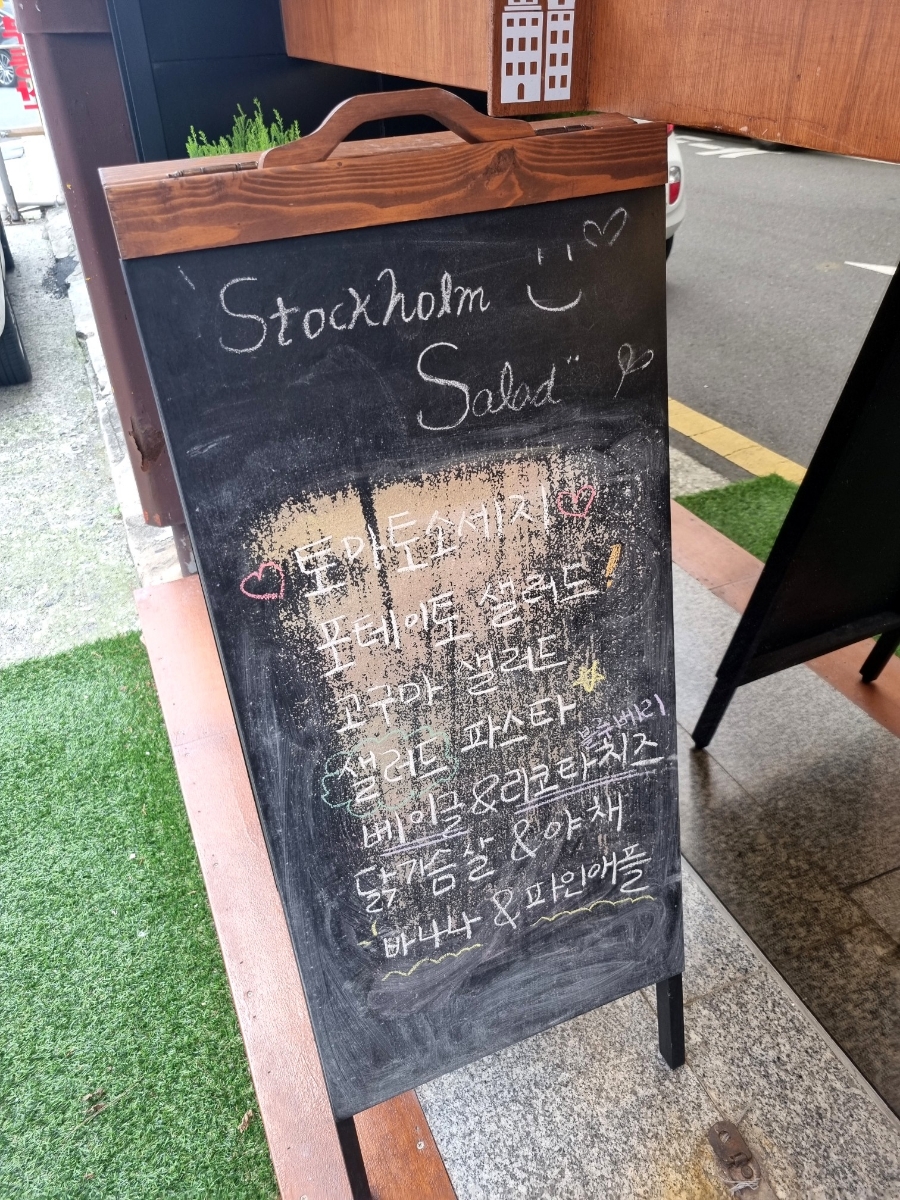 Stockholm
Salad
토마토소세지
포테이토 샐러드!
고구마 샐러드
샐러드 파스타
블루베리
베이글&리코타치즈
닭가슴살 &야채
바나나 & 파인애플